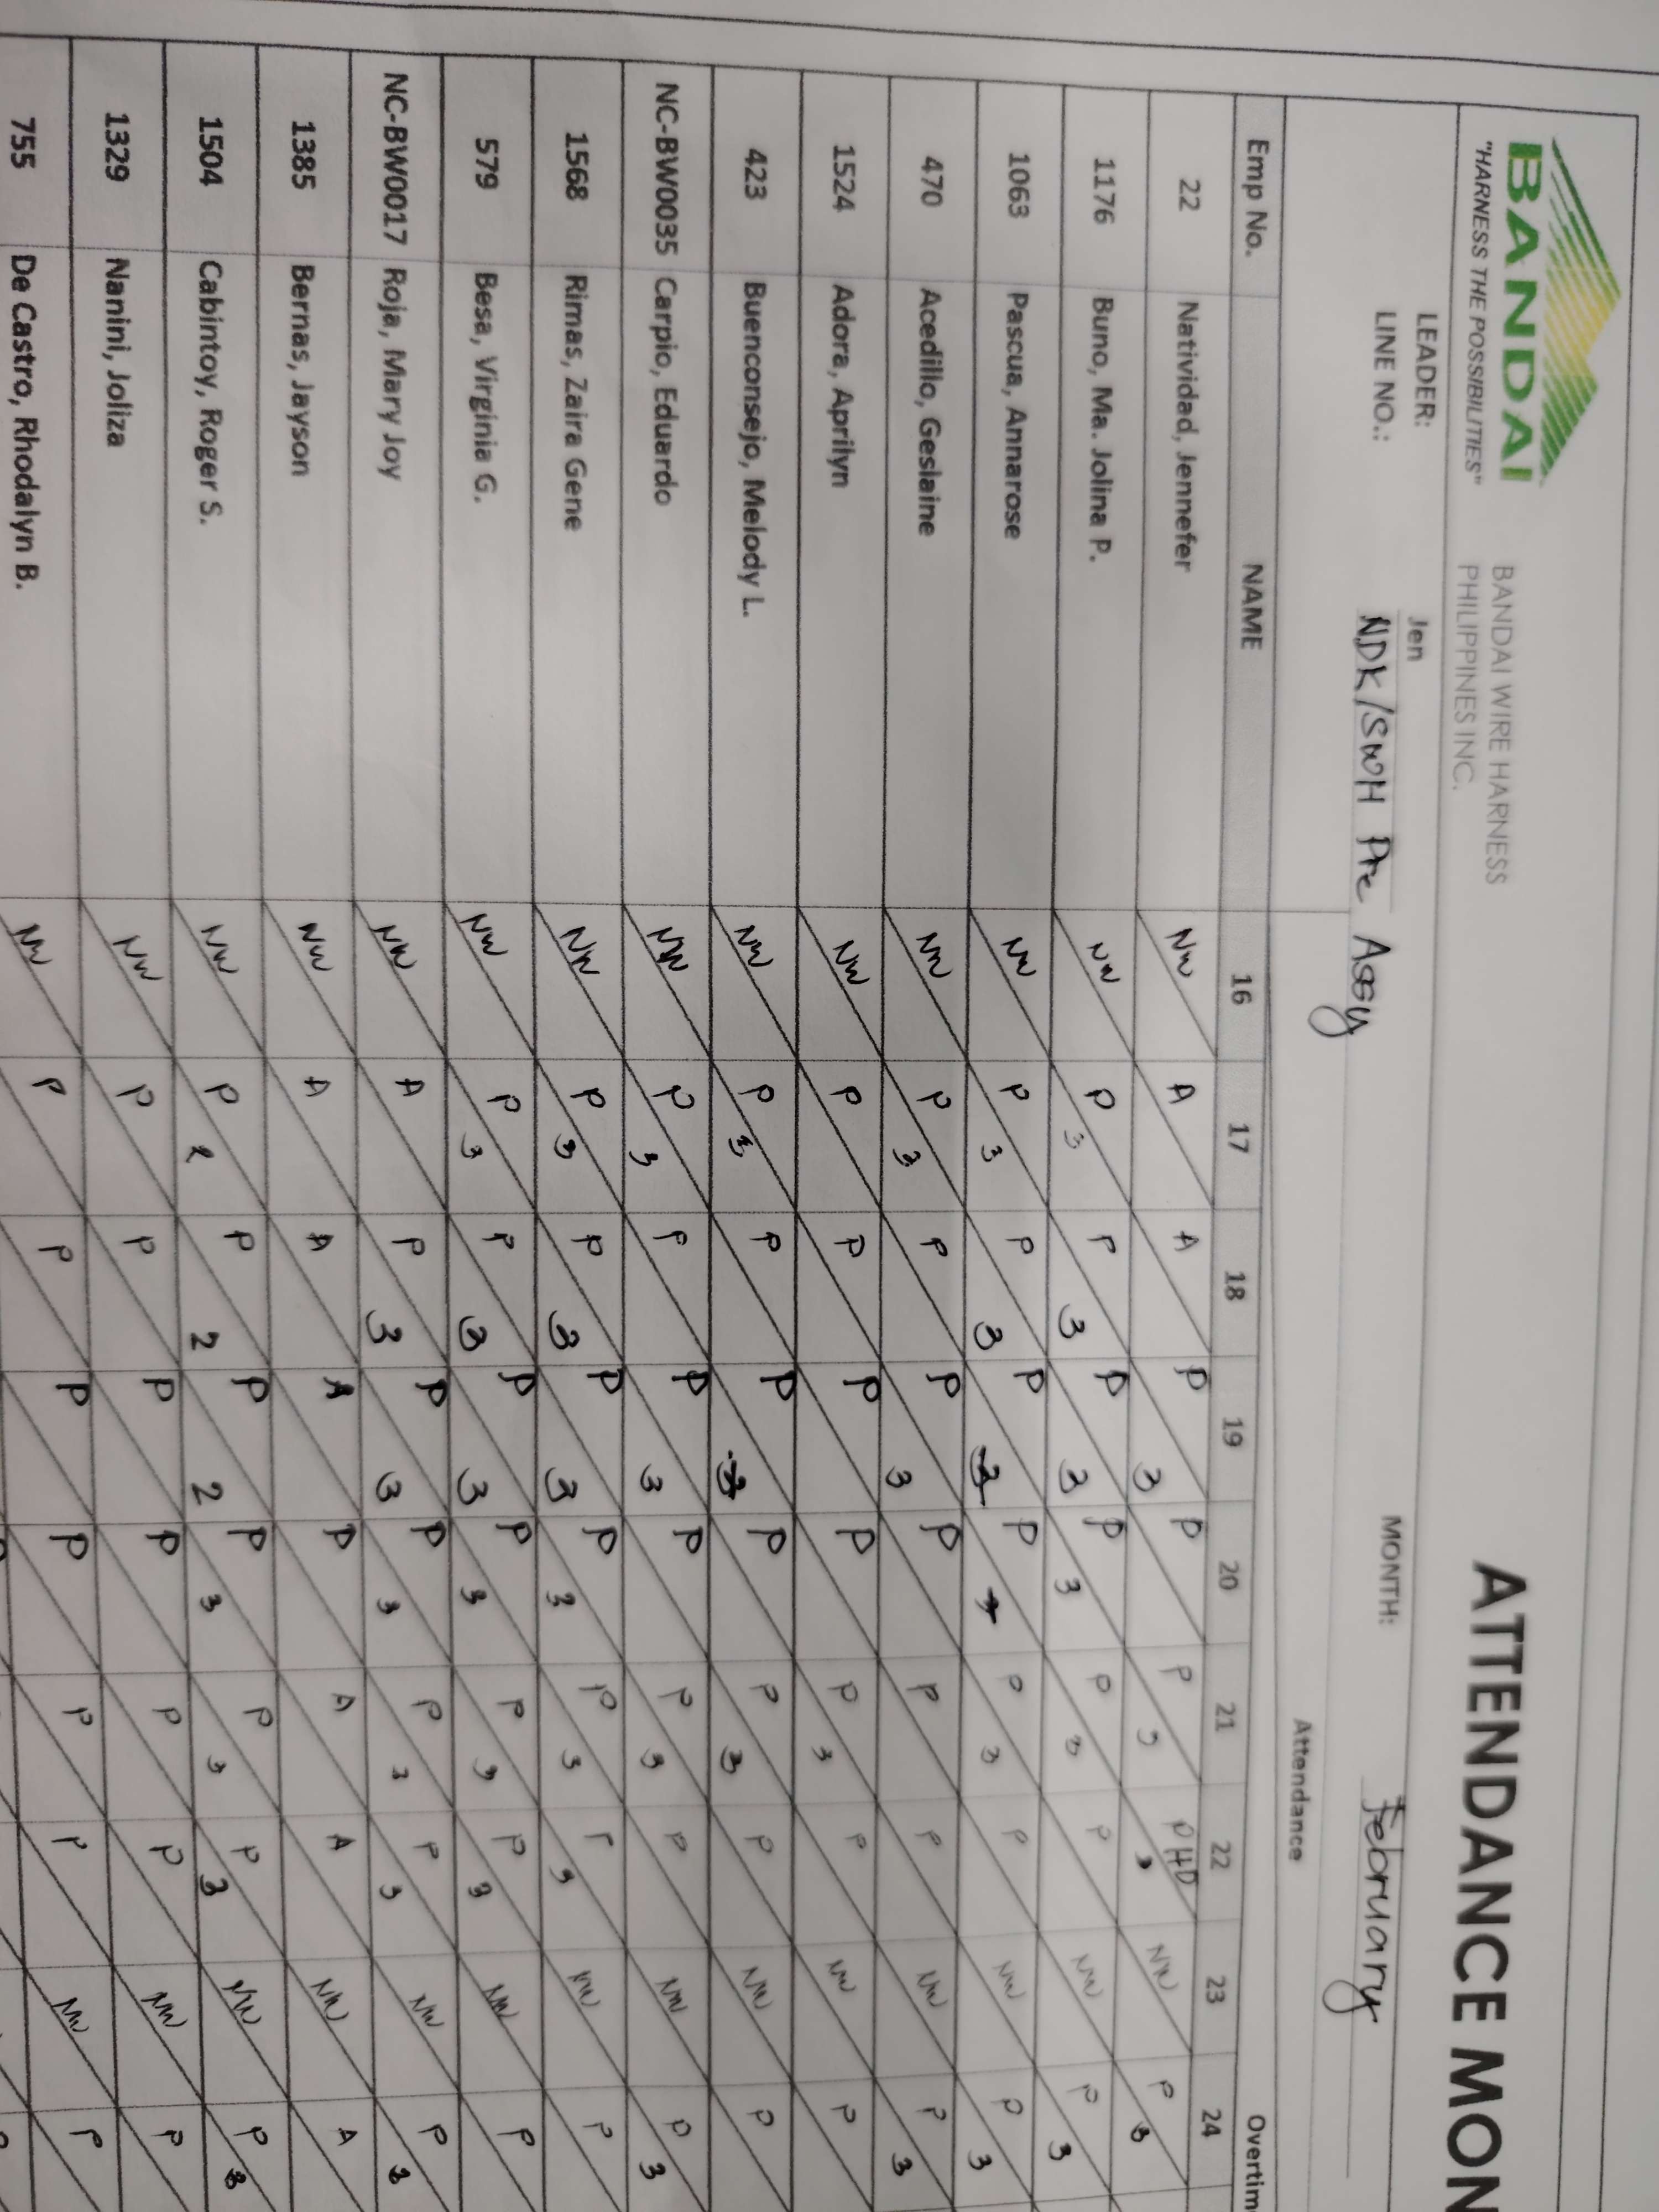 BANDAI
"HARNESS THE POSSIBILITIES"
BANDAI WIRE HARNESS
PHILIPPINES INC.
ATTENDANCE MON
LEADER: Jen
LINE NO.: NDK/SWH Pre Assy
MONTH: February
Attendance
Overtim
Emp No. NAME 16 17 18 19 20 21 22 23 24
22 Natividad, Jennefer NW A A P 3 P P 3 P HD NW P 3
1176 Buno, Ma. Jolina P. NW P 3 P 3 P 3 P 3 P 3 P NW P 3
1063 Pascua, Annarose NW P 3 P 3 P P P 3 P NW P 3
470 Acedillo, Geslaine NW P 3 P P 3 P P P NW P 3
1524 Adora, Aprilyn NW P P P P P 3 P NW P
423 Buenconsejo, Melody L. NW P 3 P P P P 3 P NW P
NC-BW0035 Carpio, Eduardo NW P 3 P P 3 P P 3 P NW P 3
1568 Rimas, Zaira Gene NW P 3 P 3 P 3 P 3 P 3 P 3 NW P
579 Besa, Virginia G. NW P 3 P 3 P 3 P 3 P 3 P 3 NW P
NC-BW0017 Roja, Mary Joy NW A P 3 P 3 P 3 P 3 P 3 NW P 3
1385 Bernas, Jayson NW A A A P A A NW A
1504 Cabintoy, Roger S. NW P P 2 P 2 P 3 P 3 P 3 NW P 3
1329 Nanini, Joliza NW P P P P P P NW P
755 De Castro, Rhodalyn B. NW P P P P P P NW P